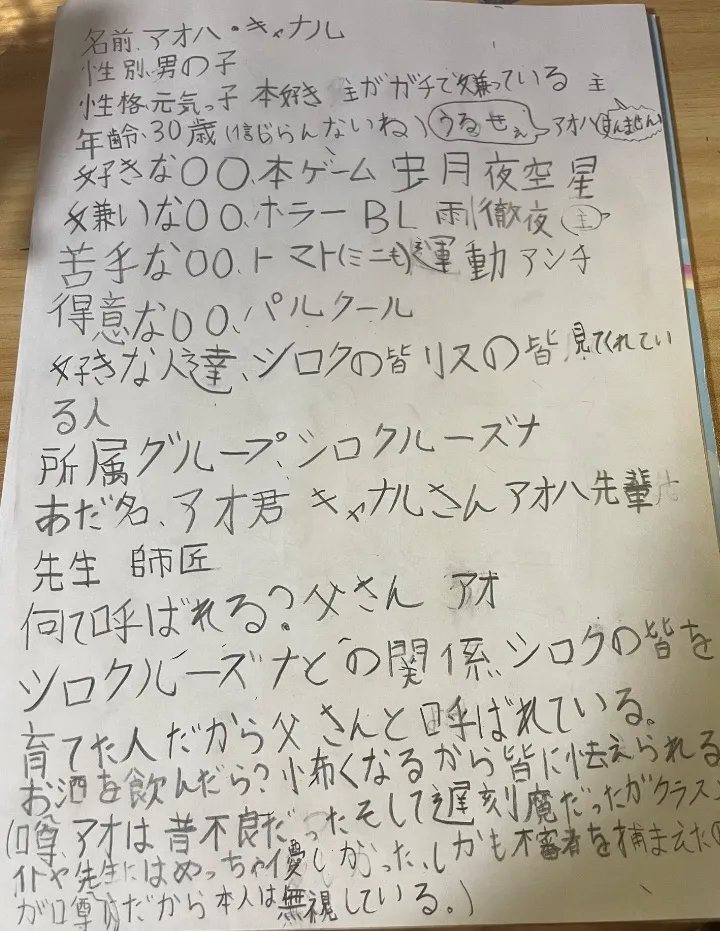 名前、アオハ・キャナル
性別、男の子
性格、元気っ子 本好き 主がガチで嫌っている 主
年齢、30歳(信じらんないね) うるせぇ アオハ すんません
好きな〇〇、本ゲーム 虫 月 夜空 星
嫌いな〇〇、ホラー BL 雨 徹夜 主
苦手な〇〇、トマト(ミニも) 運動 アンチ
得意な〇〇、パルクール
好きな人達、シロクの皆 リスの皆 見てくれてい
る人
所属グループ、シロクルーズナ
あだ名、アオ君 キャナルさん アオハ先輩
先生 師匠
何て呼ばれる?父さん アオ
シロクルーズナとの関係、シロクの皆を
育てた人だから父さんと呼ばれている。
お酒を飲んだら?怖くなるから皆に怯えられる
(噂、アオは昔不良だったそして遅刻魔だったがクラスメ
イトや先生にはめっちゃ優しかった、しかも不審者を捕まえたの
が噂だから本人は無視している。)